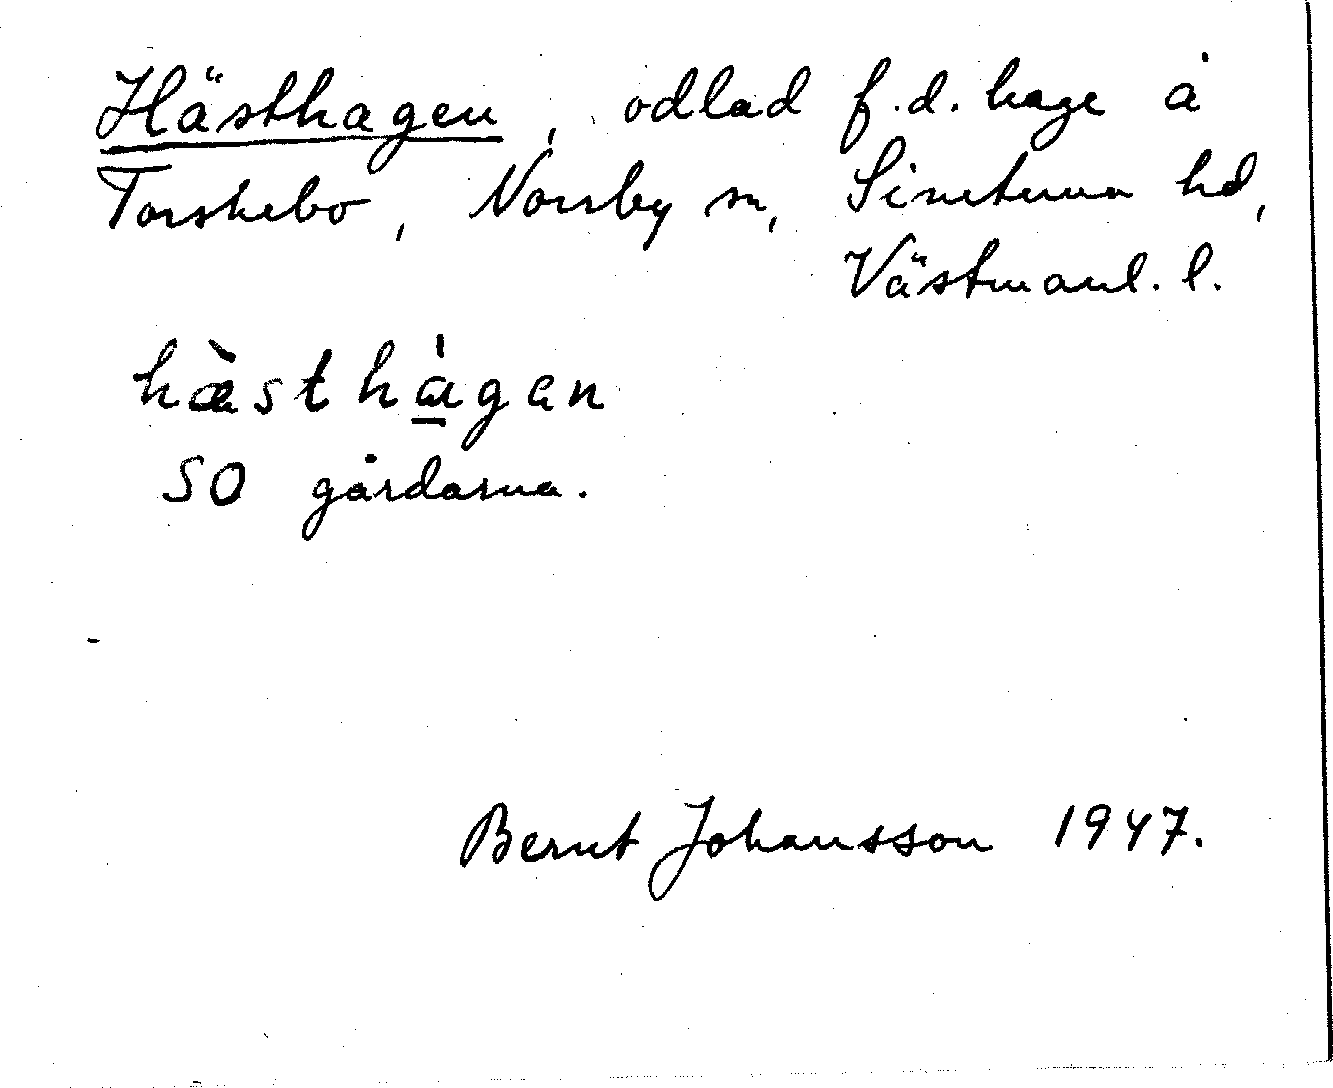 Hästhagen, odlad f.d. hage å
Torskebo, Norrby sn, Simtuna hd,
Västmanl. l.
hæ̀sthàgen
SO gårdarna.
Bernt Johansson 1947.